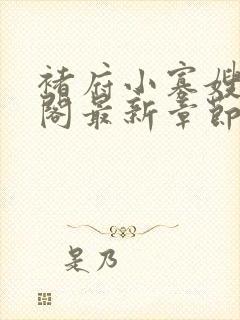 褚府小寡嫂
阁最新章节
是乃